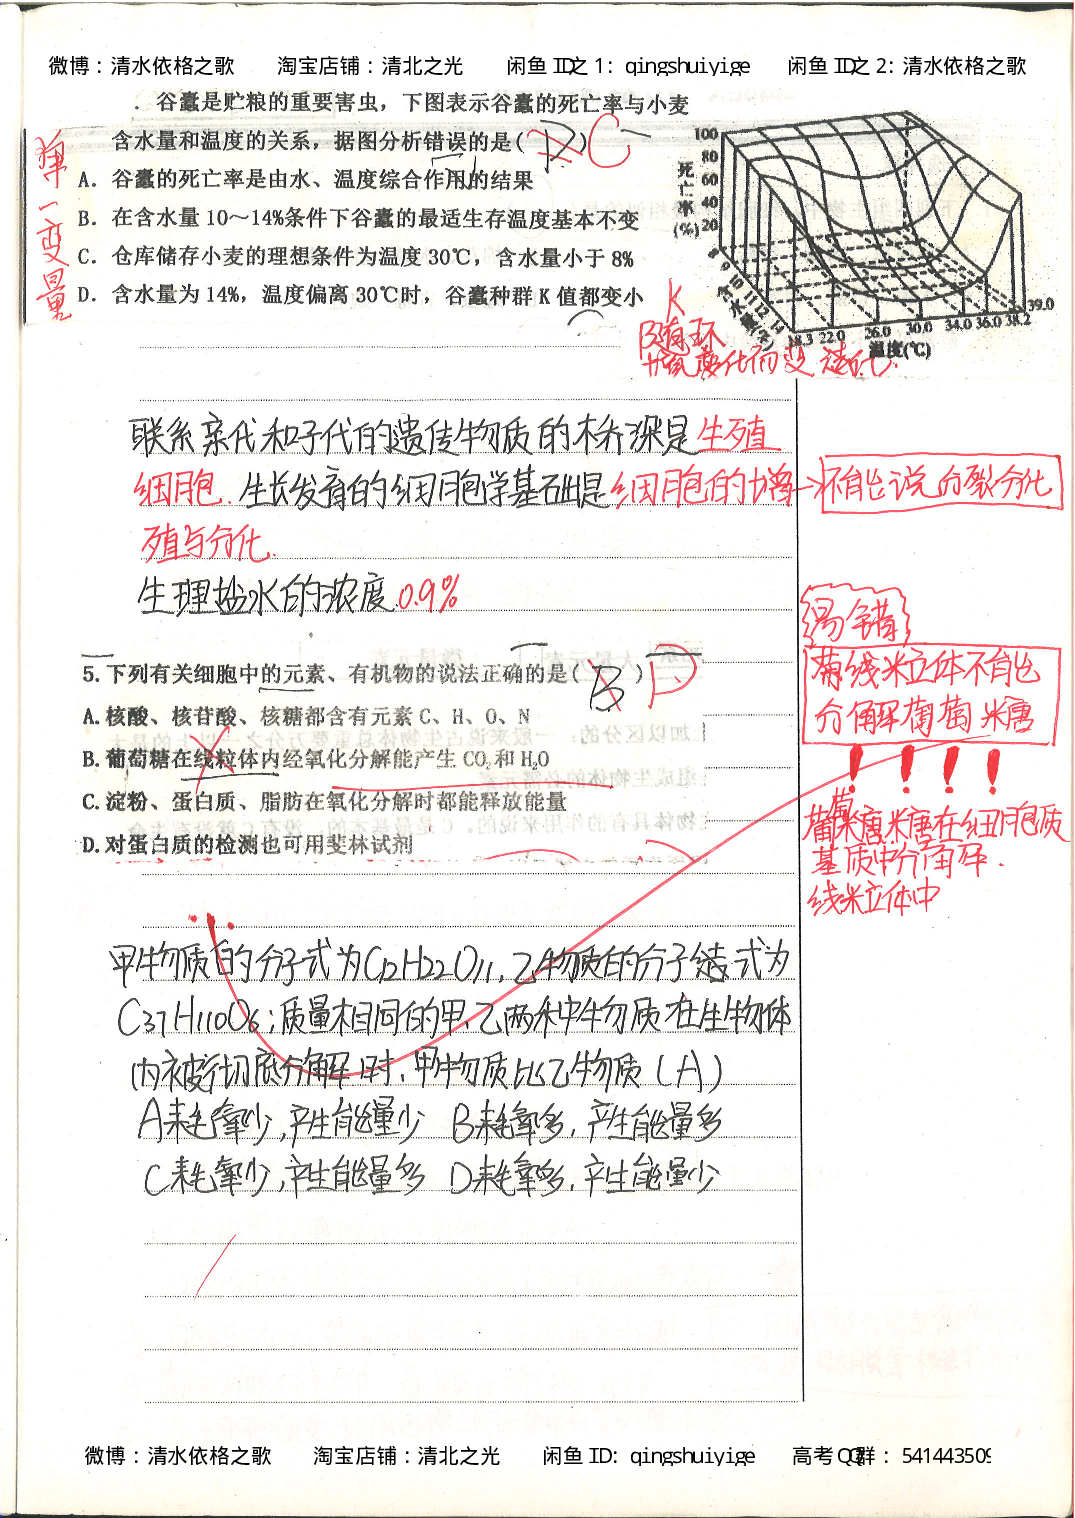 微博：清水依格之歌 淘宝店铺：清北之光 闲鱼ID之1：qingshuiyige 闲鱼ID之2：清水依格之歌
. 谷蠹是贮粮的重要害虫，下图表示谷蠹的死亡率与小麦
含水量和温度的关系，据图分析错误的是( D ) C
A．谷蠹的死亡率是由水、温度综合作用的结果
B．在含水量10～14%条件下谷蠹的最适生存温度基本不变
C．仓库储存小麦的理想条件为温度30℃，含水量小于8%
D．含水量为14%，温度偏离30℃时，谷蠹种群K值都变小
单一变量
死亡率(%)
100
80
60
40
20
8 9 10 11 12 14
含水量(%)
18.3 22.0 26.0 30.0 34.0 36.0 38.2 39.0
温度(℃)
K
联系亲代和子代的遗传物质的桥梁是生殖
细胞. 生长发育的细胞学基础是细胞的增
殖与分化.
→不能说分裂分化
生理盐水的浓度0.9%
5.下列有关细胞中的元素、有机物的说法正确的是( B ) D
A.核酸、核苷酸、核糖都含有元素C、H、O、N
B.葡萄糖在线粒体内经氧化分解能产生CO₂和H₂O
C.淀粉、蛋白质、脂肪在氧化分解时都能释放能量
D.对蛋白质的检测也可用斐林试剂
易错
线粒体不能
分解葡萄糖
！！！！
葡萄糖在细胞质
基质中分解.
线粒体中
甲物质的分子式为C12H22O11，乙物质的分子结式为
C37H110O6；质量相同的甲、乙两种物质在生物体
内被彻底分解时，甲物质比乙物质（A）
A耗氧少，产生能量少 B耗氧多，产生能量多
C耗氧少，产生能量多 D耗氧多，产生能量少
微博：清水依格之歌 淘宝店铺：清北之光 闲鱼ID：qingshuiyige 高考QQ群：541443509